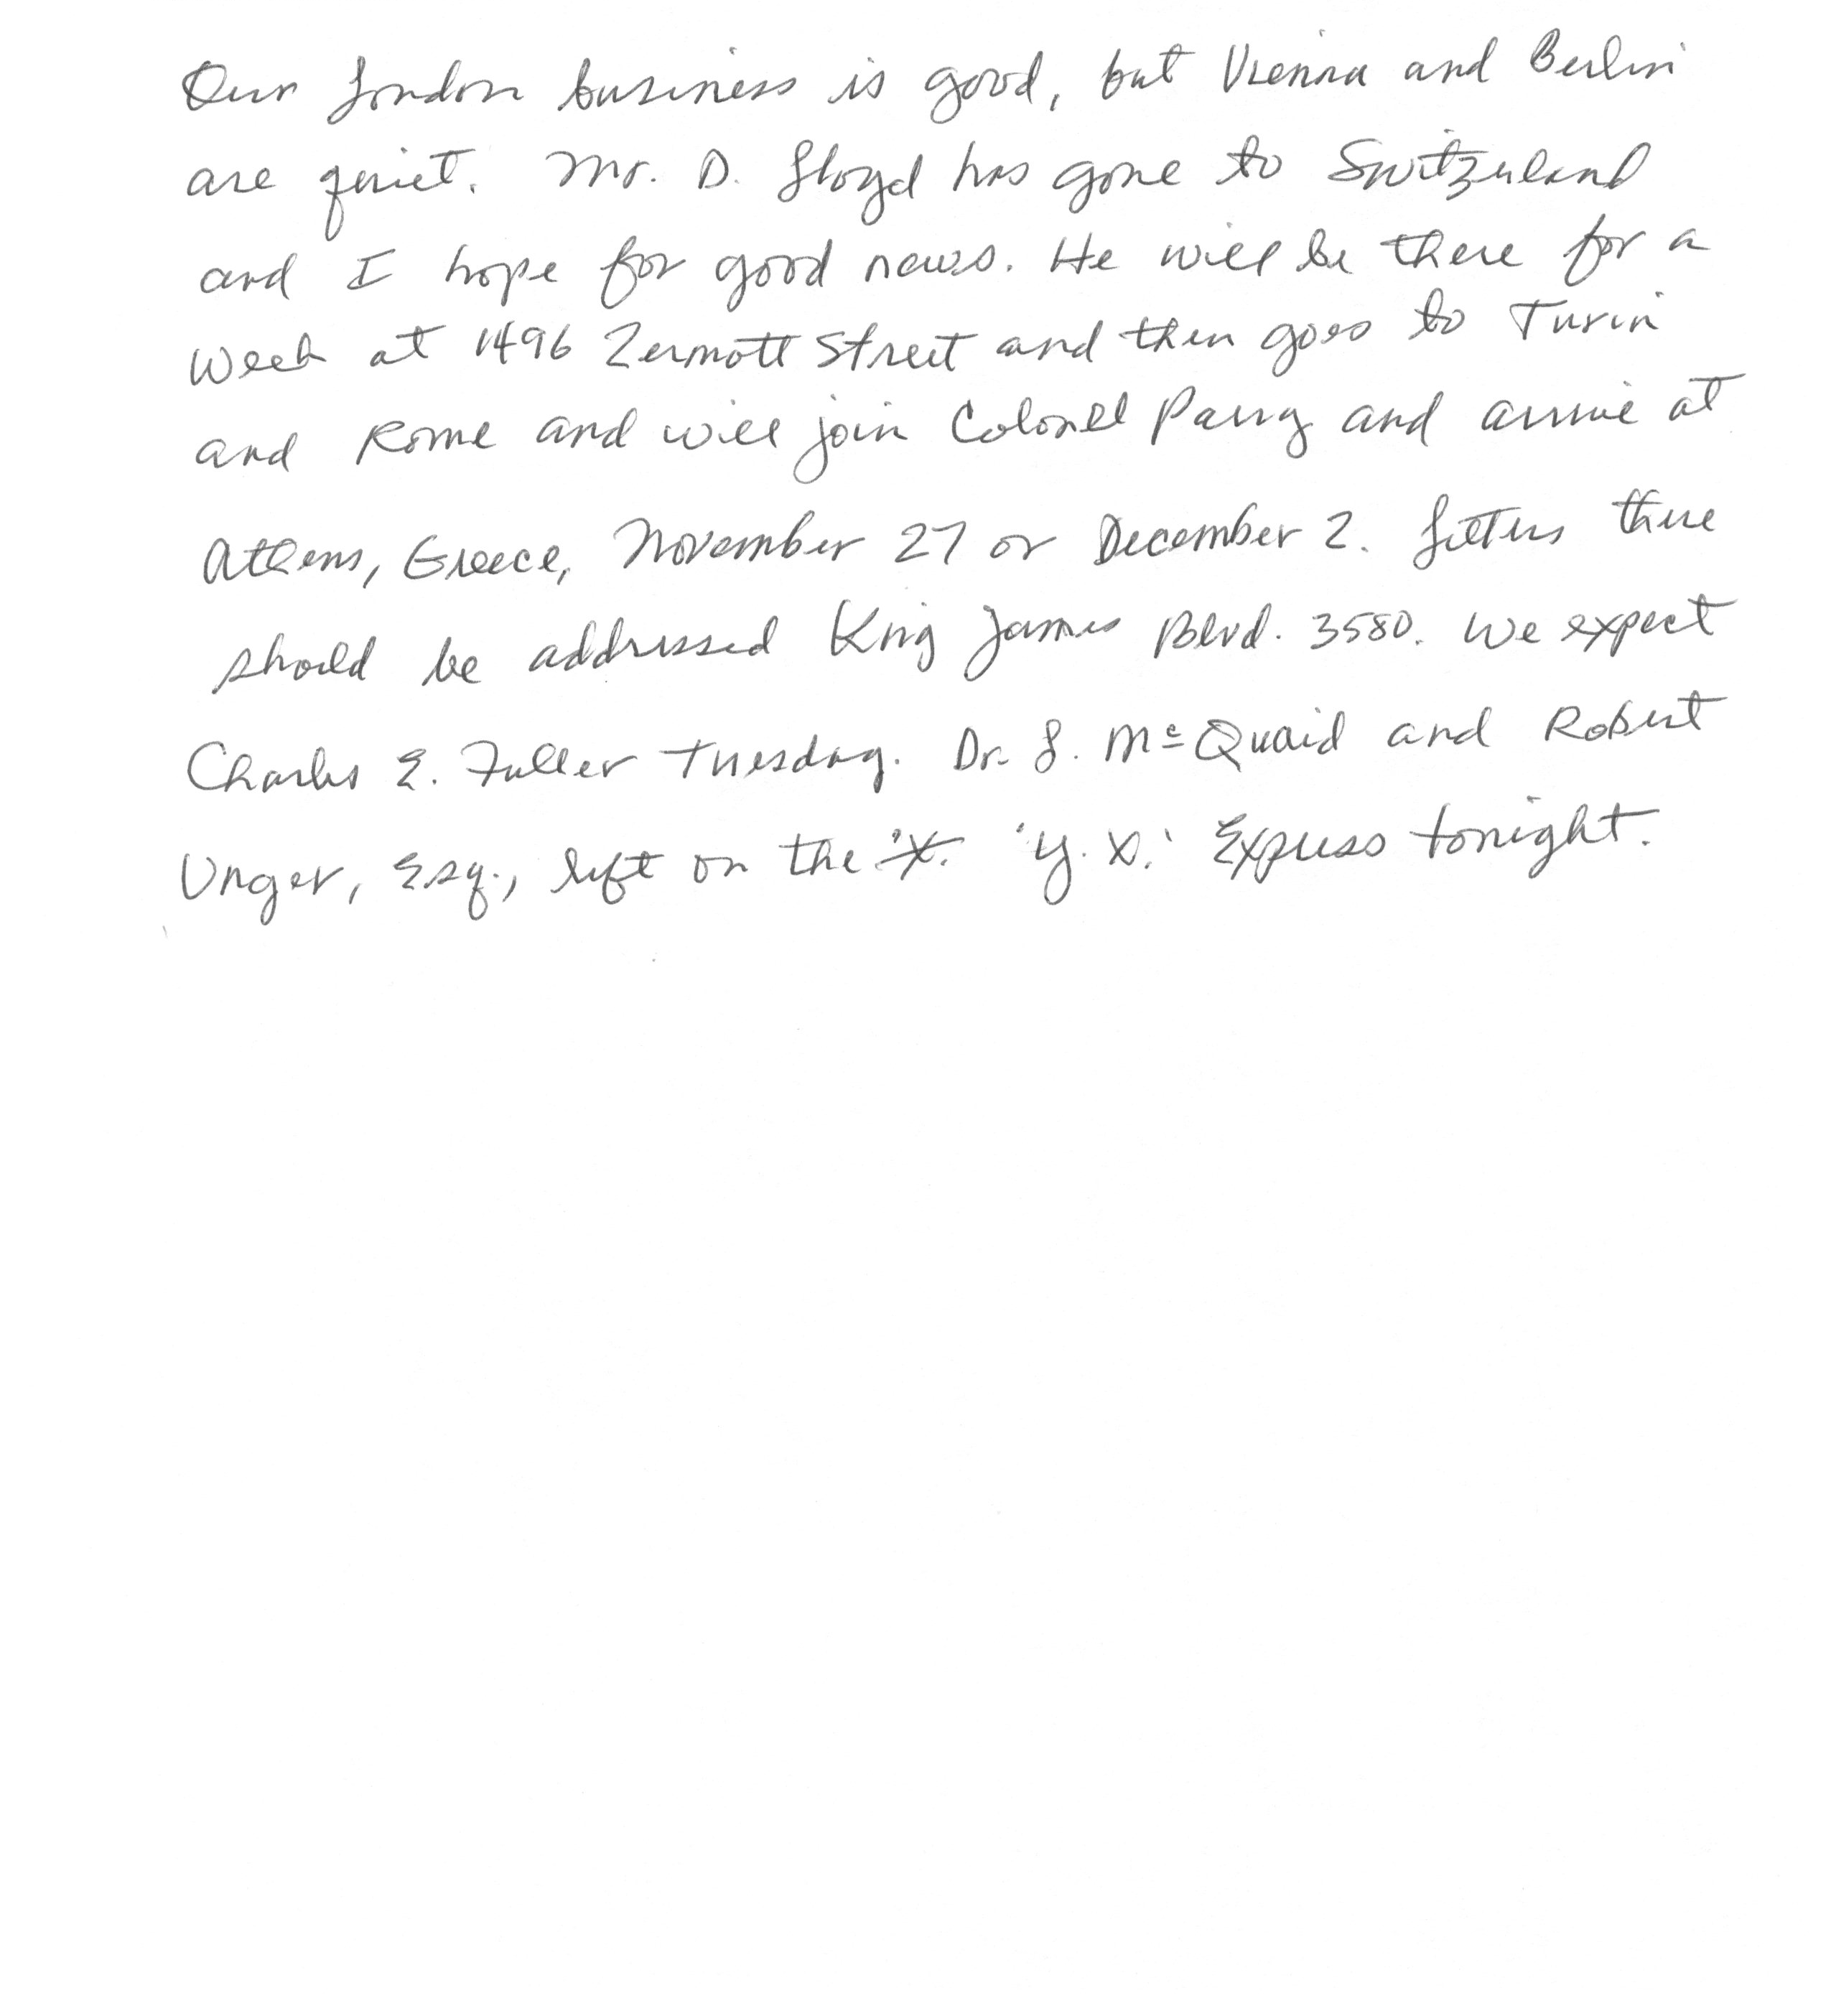 Our London business is good, but Vienna and Berlin
are quiet. Mr. D. Lloyd has gone to Switzerland
and I hope for good news. He will be there for a
week at 1496 Zermott Street and then goes to Turin
and Rome and will join Colonel Parry and arrive at
Athens, Greece, November 27 or December 2. Letters there
should be addressed King James Blvd. 3580. We expect
Charles E. Fuller Tuesday. Dr. L. McQuaid and Robert
Unger, Esq., left on the 'Y. X.' Express tonight.